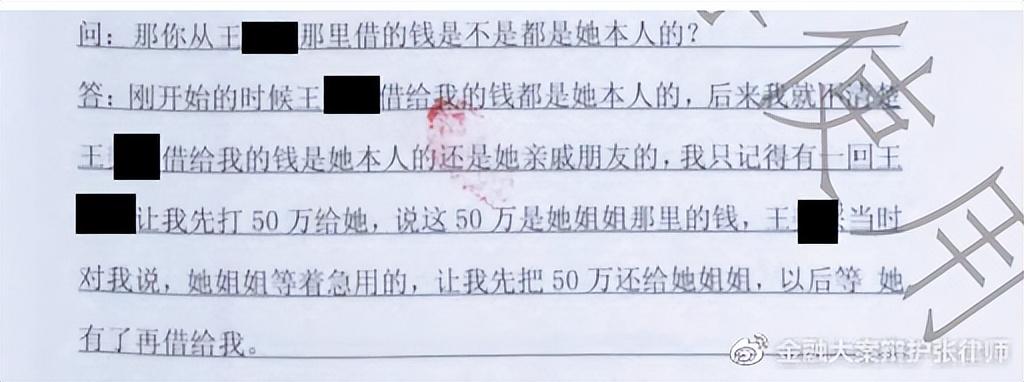 问：那你从王那里借的钱是不是都是她本人的？
答：刚开始的时候王借给我的钱都是她本人的，后来我就不清楚
王借给我的钱是她本人的还是她亲戚朋友的，我只记得有一回王
让我先打50万给她，说这50万是她姐姐那里的钱，王当时
对我说，她姐姐等着急用的，让我先把50万还给她姐姐，以后等 她
有了再借给我。
使用
金融大案辩护张律师